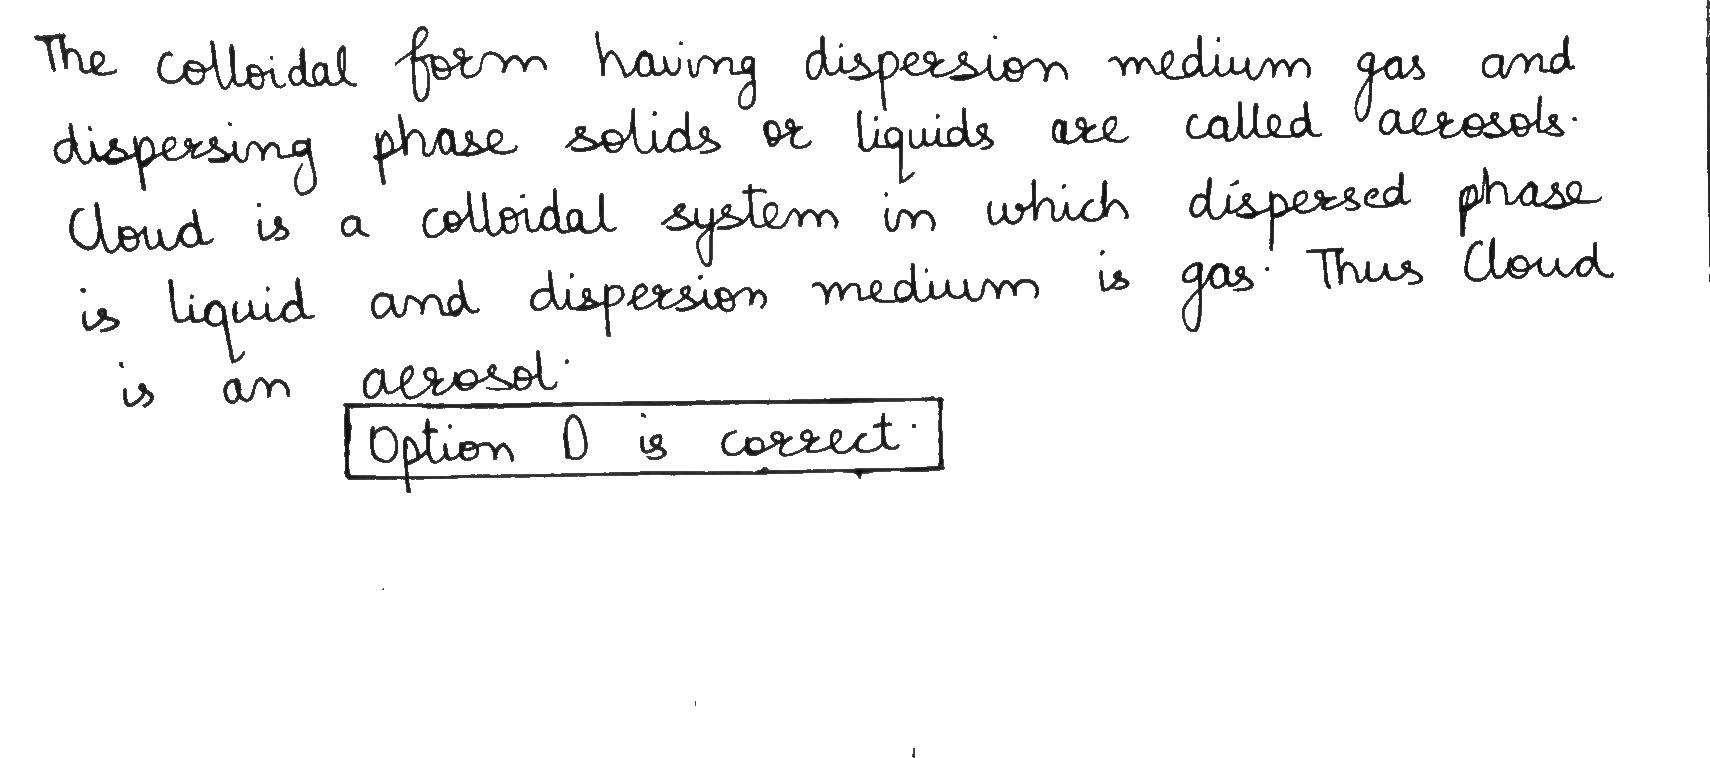 The colloidal form having dispersion medium gas and
dispersing phase solids or liquids are called aerosols.
Cloud is a colloidal system in which dispersed phase
is liquid and dispersion medium is gas. Thus Cloud
is an aerosol.
Option D is correct.